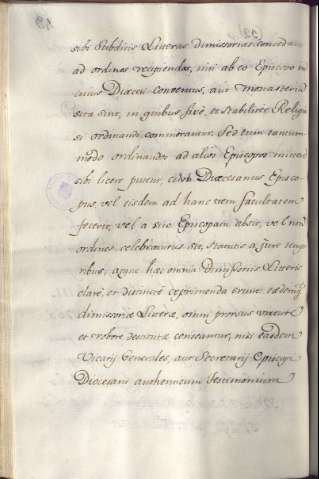 sibi Subditis Literas dimissorias concedant
ad ordines recipiendos, nisi ab eo Episcopo in
cuius Diœcesi conventus, aut monasteria
sita sint, in quibus fixè, et stabiliter Religio
si ordinandi commorantur. Sed tum tantum
modo ordinandos ad alios Episcopos mittere
sibi licere putent, cùm Diœcesanus Episco-
pus, vel eisdem ad hanc rem facultatem
fecerit, vel à suo Episcopatu absit, vel non
ordines celebraturus sit, statutis à jure tempo
ribus, atque hæc omnia Dimissoriis Literis
clarè, et distinctè exprimenda erunt: eædemq;
dimissoriæ Literæ, omni prorsus virtute
et robore destitutæ censeantur, nisi eædem
Vicarij Generales, aut Secretarij Episcopi
Diœcesani authenticum testimonium